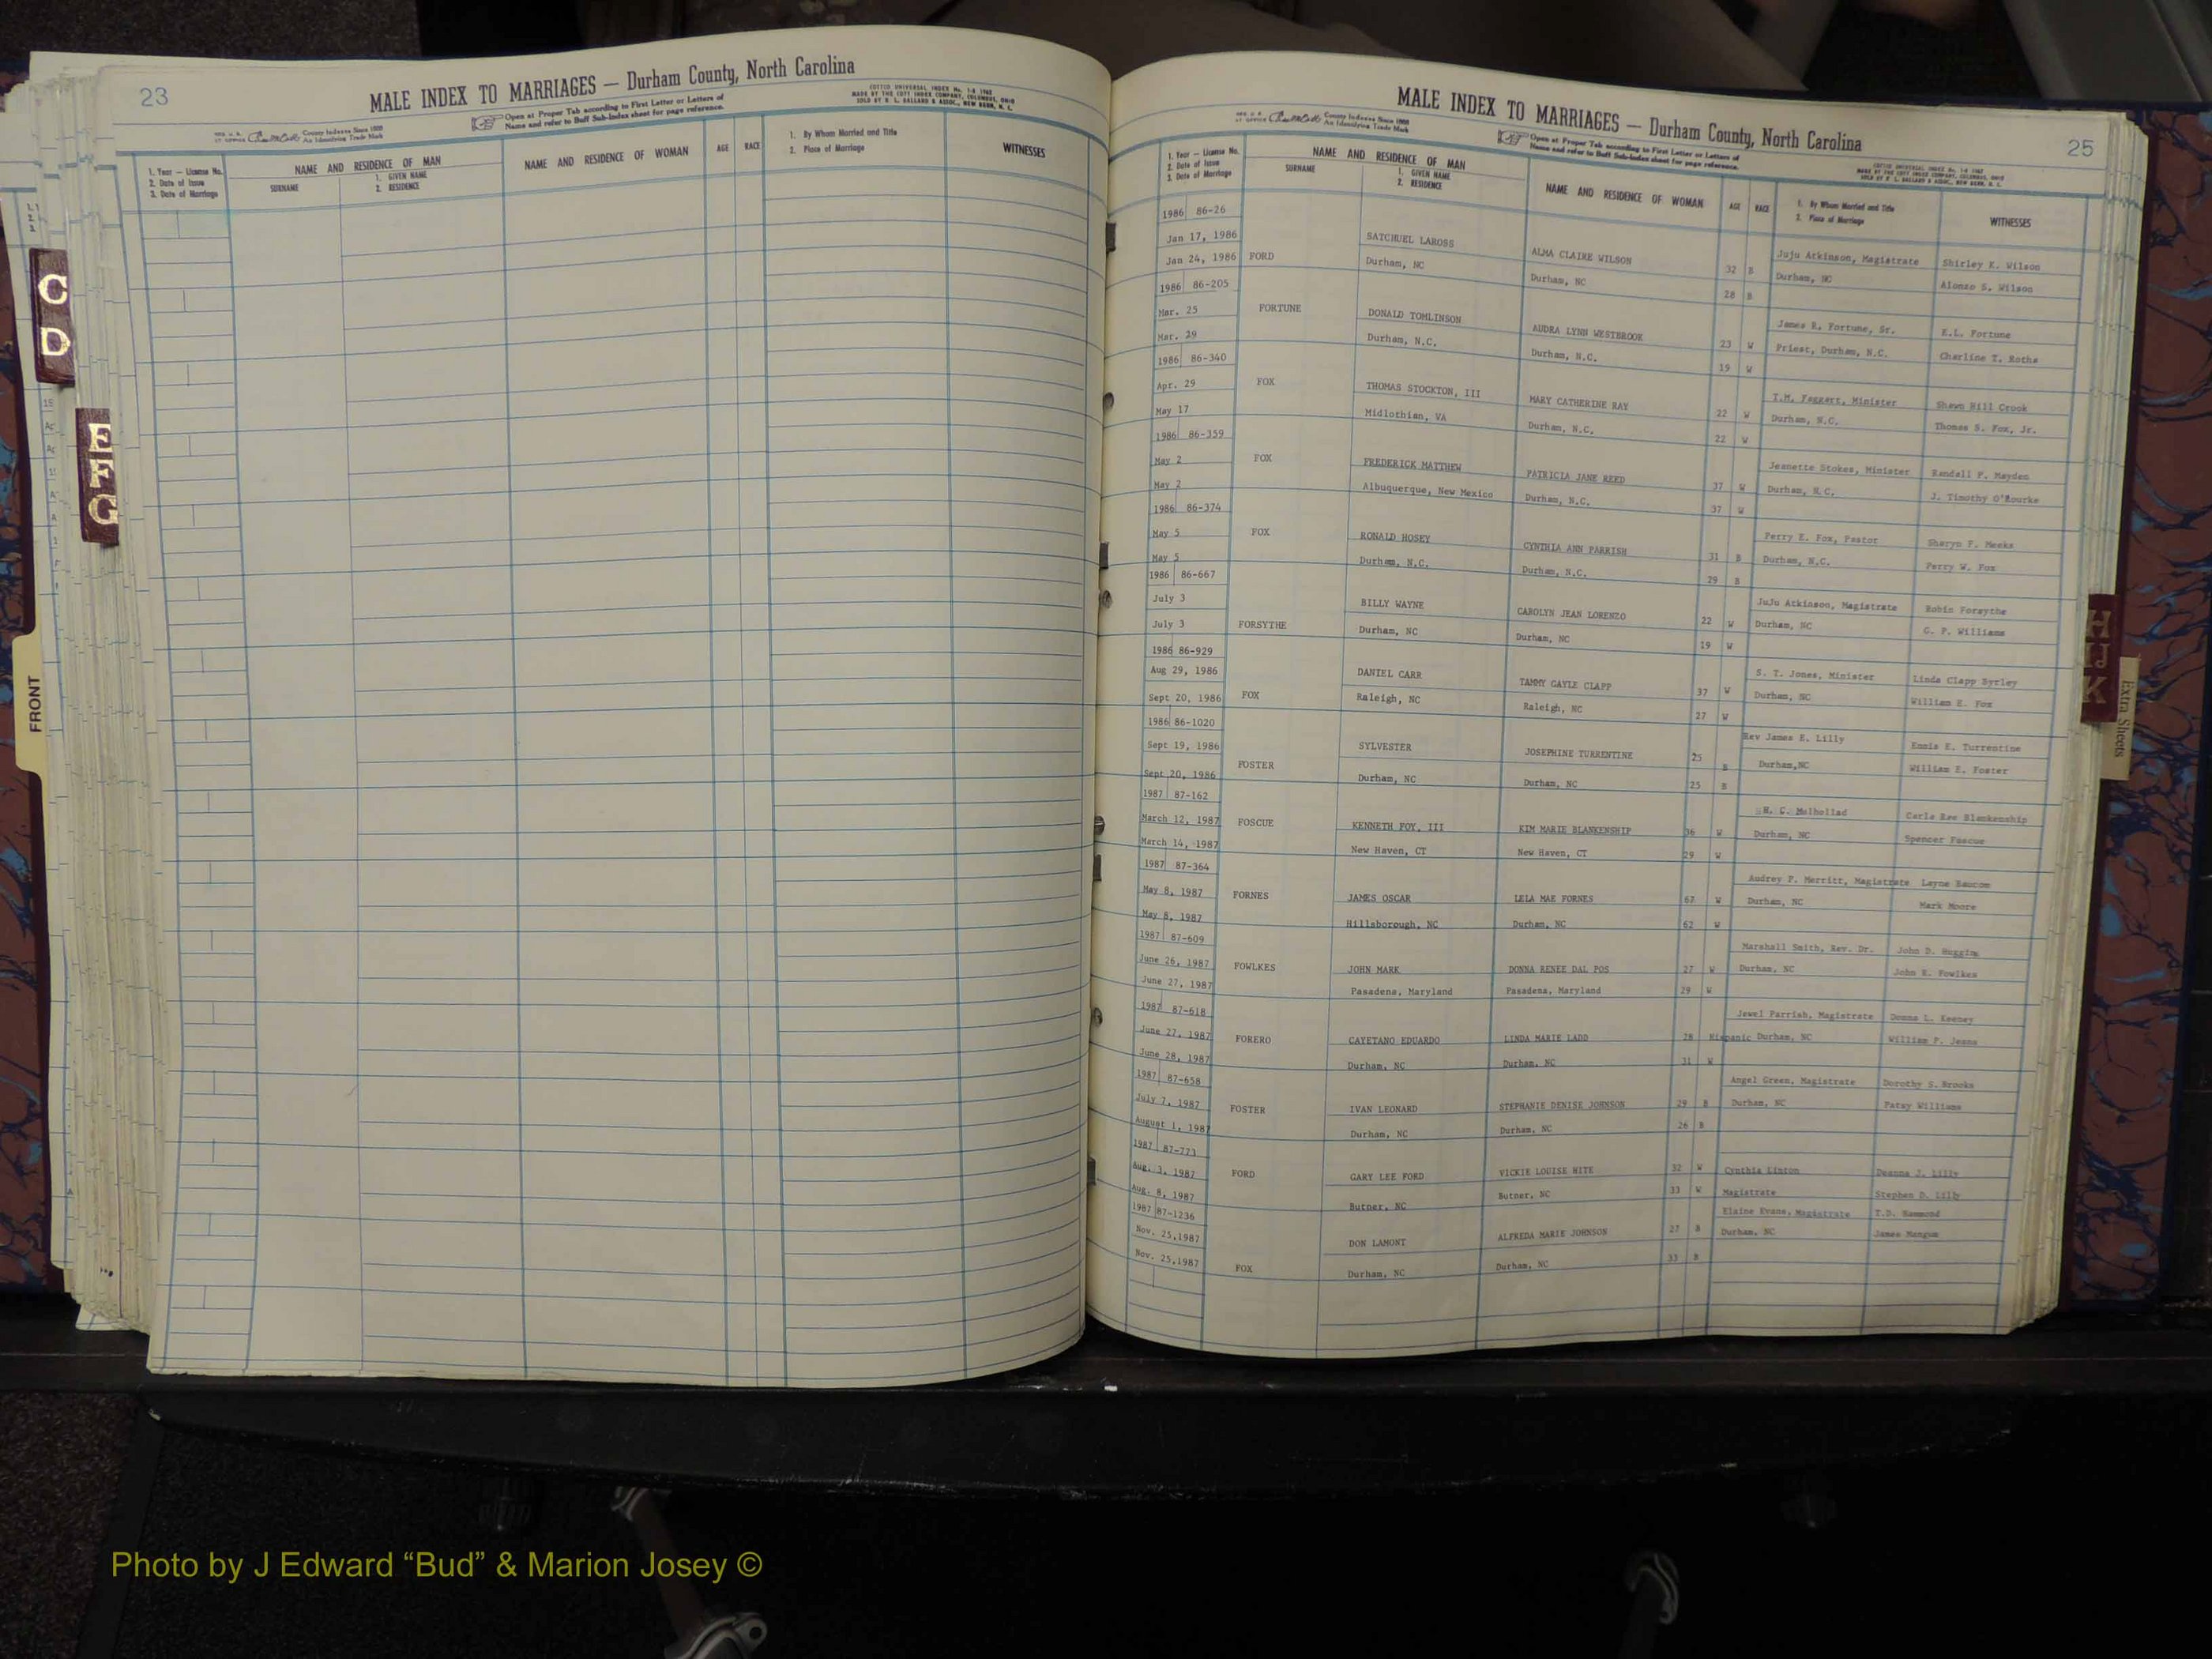 23
MALE INDEX TO MARRIAGES — Durham County, North Carolina
COTTCO UNIVERSAL INDEX No. 1-6 1962
MADE BY THE COTT INDEX COMPANY, COLUMBUS, OHIO
SOLD BY R. L. BALLARD & ASSOC., NEW BERN, N. C.
County Indexes Since 1888
An Identifying Trade Mark
Open at Proper Tab according to First Letter or Letters of
Name and refer to Buff Sub-Index sheet for page reference.
1. Year — License No.
2. Date of Issue
3. Date of Marriage
NAME AND RESIDENCE OF MAN
SURNAME
1. GIVEN NAME
2. RESIDENCE
NAME AND RESIDENCE OF WOMAN
AGE
RACE
1. By Whom Married and Title
2. Place of Marriage
WITNESSES
C
D
E
F
G
FRONT
MALE INDEX TO MARRIAGES — Durham County, North Carolina
25
County Indexes Since 1888
An Identifying Trade Mark
Open at Proper Tab according to First Letter or Letters of
Name and refer to Buff Sub-Index sheet for page reference.
1. Year — License No.
2. Date of Issue
3. Date of Marriage
NAME AND RESIDENCE OF MAN
SURNAME
1. GIVEN NAME
2. RESIDENCE
NAME AND RESIDENCE OF WOMAN
AGE
RACE
1. By Whom Married and Title
2. Place of Marriage
WITNESSES
1986 86-26
Jan 17, 1986 SATCHUEL LAROSS ALMA CLAIRE WILSON 32 B Juju Atkinson, Magistrate Shirley K. Wilson
Jan 24, 1986 FORD Durham, NC Durham, NC 28 B Durham, NC Alonzo S. Wilson
1986 86-205
Mar. 25 FORTUNE DONALD TOMLINSON AUDRA LYNN WESTBROOK 23 W James R. Fortune, Sr. E.L. Fortune
Mar. 29 Durham, N.C. Durham, N.C. 19 W Priest, Durham, N.C. Charline T. Roths
1986 86-340
Apr. 29 FOX THOMAS STOCKTON, III MARY CATHERINE RAY 22 W T.M. Faggart, Minister Shawn Hill Crook
May 17 Midlothian, VA Durham, N.C. 22 W Durham, N.C. Thomas S. Fox, Jr.
1986 86-359
May 2 FOX FREDERICK MATTHEW PATRICIA JANE REED 37 W Jeanette Stokes, Minister Randall P. Mayden
May 2 Albuquerque, New Mexico Durham, N.C. 37 W Durham, N.C. J. Timothy O'Rourke
1986 86-374
May 5 FOX RONALD HOSEY CYNTHIA ANN PARRISH 31 B Perry E. Fox, Pastor Sharyn F. Meeks
May 5 Durham, N.C. Durham, N.C. 29 B Durham, N.C. Perry W. Fox
1986 86-667
July 3 BILLY WAYNE CAROLYN JEAN LORENZO 22 W JuJu Atkinson, Magistrate Robin Forsythe
July 3 FORSYTHE Durham, NC Durham, NC 19 W Durham, NC G. P. Williams
1986 86-929
Aug 29, 1986 DANIEL CARR TAMMY GAYLE CLAPP 37 W S. T. Jones, Minister Linda Clapp Byrley
Sept 20, 1986 FOX Raleigh, NC Raleigh, NC 27 W Durham, NC William E. Fox
1986 86-1020
Sept 19, 1986 SYLVESTER JOSEPHINE TURRENTINE 25 B Rev James E. Lilly Ennis E. Turrentine
Sept 20, 1986 FOSTER Durham, NC Durham, NC 25 B Durham,NC William E. Foster
1987 87-162
March 12, 1987 FOSCUE KENNETH FOY, III KIM MARIE BLANKENSHIP 36 W W. C. Melhollad Carla Rae Blankenship
March 14, 1987 New Haven, CT New Haven, CT 29 W Durham, NC Spencer Foscue
1987 87-364
May 8, 1987 FORNES JAMES OSCAR LELA MAE FORNES 67 W Audrey P. Merritt, Magistrate Layne Baucom
May 8, 1987 Hillsborough, NC Durham, NC 62 W Durham, NC Mark Moore
1987 87-609
June 26, 1987 FOWLKES JOHN MARK DONNA RENEE DAL POS 27 W Marshall Smith, Rev. Dr. John D. Huggins
June 27, 1987 Pasadena, Maryland Pasadena, Maryland 29 W Durham, NC John R. Fowlkes
1987 87-618
June 27, 1987 FORERO CAYETANO EDUARDO LINDA MARIE LADD 28 Hispanic Jewel Parrish, Magistrate Donna L. Keeney
June 28, 1987 Durham, NC Durham, NC 31 W Durham, NC William P. Jeans
1987 87-658
July 7, 1987 FOSTER IVAN LEONARD STEPHANIE DENISE JOHNSON 29 B Angel Green, Magistrate Dorothy S. Brooks
August 1, 1987 Durham, NC Durham, NC 26 B Durham, NC Patsy Williams
1987 87-773
Aug. 3, 1987 FORD GARY LEE FORD VICKIE LOUISE HITE 32 W Cynthia Linton Deanna J. Lilly
Aug. 8, 1987 Butner, NC Butner, NC 33 W Magistrate Stephen D. Lilly
1987 87-1236
Nov. 25,1987 DON LAMONT ALFREDA MARIE JOHNSON 27 B Elaine Evans, Magistrate T.D. Hammond
Nov. 25,1987 FOX Durham, NC Durham, NC 33 B Durham, NC James Mangum
H
IJ
K
Extra Sheets
Photo by J Edward “Bud” & Marion Josey ©